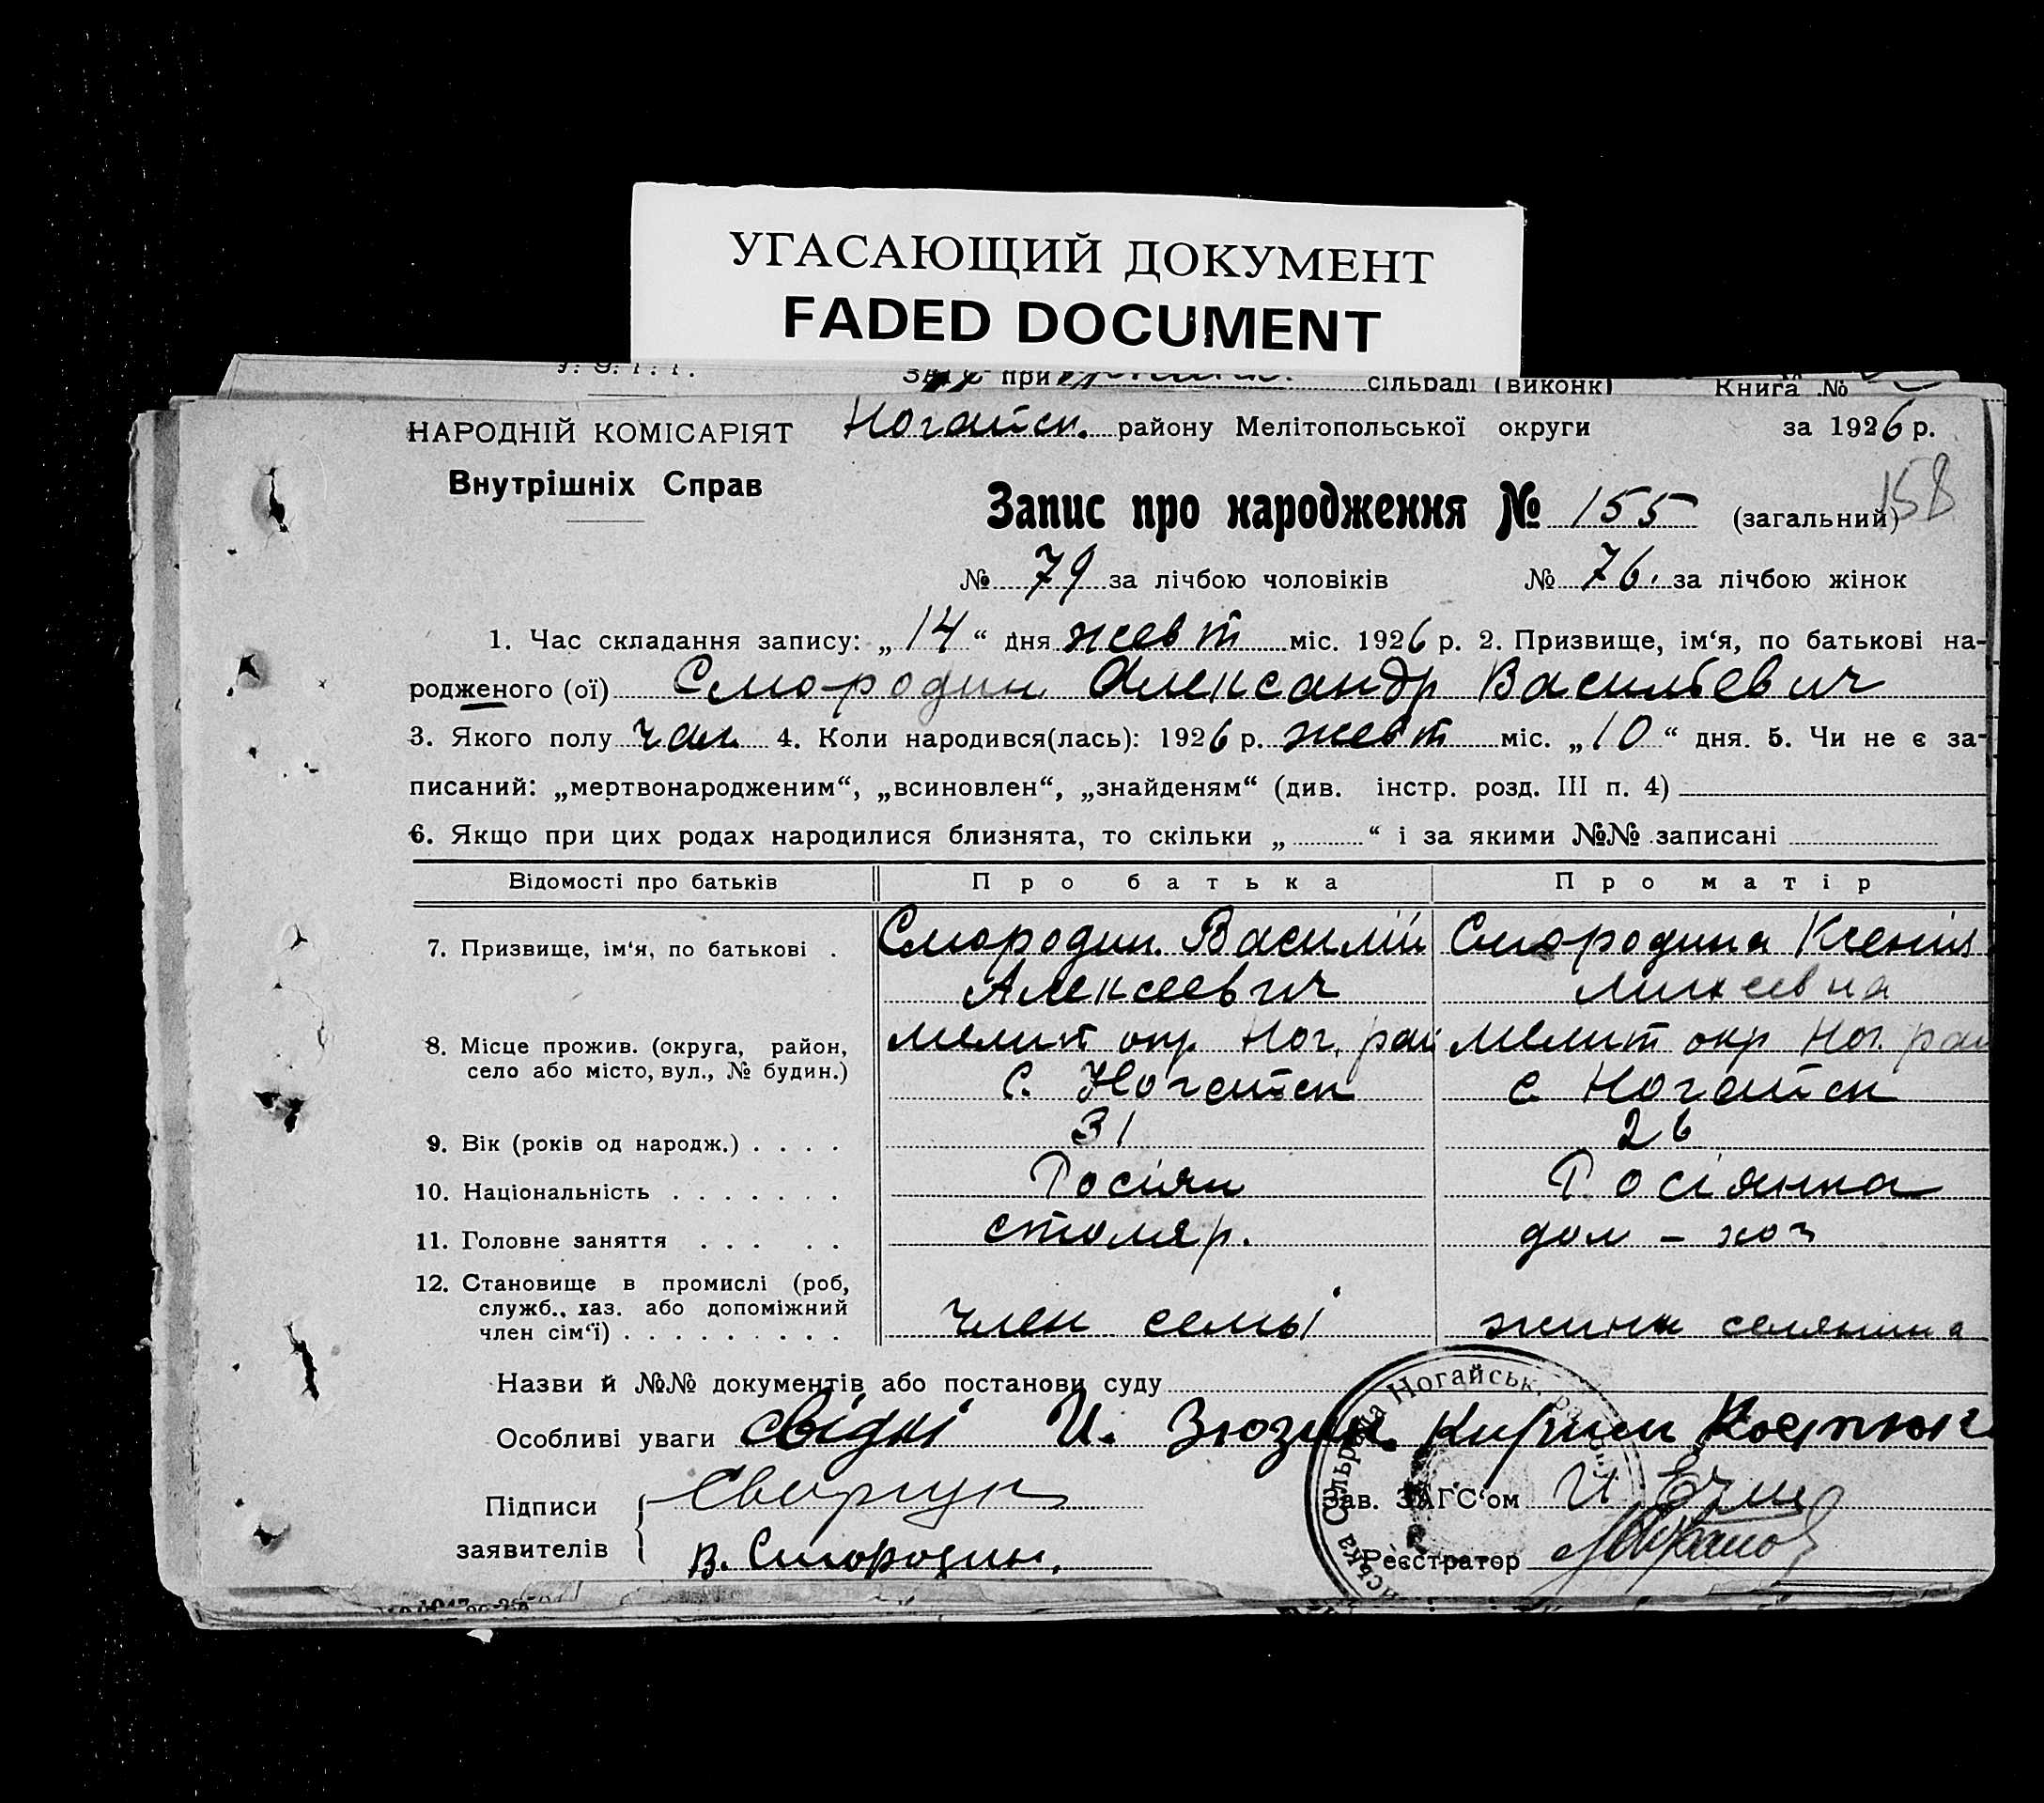 УГАСАЮЩИЙ ДОКУМЕНТ
FADED DOCUMENT
при сільраді (виконк) Книга №
НАРОДНІЙ КОМІСАРІЯТ
Внутрішніх Справ
Ногайськ. району Мелітопольської округи за 1926 р.
158
Запис про народження № 155 (загальний)
№ 79 за лічбою чоловіків № 76. за лічбою жінок
1. Час складання запису: „14“ дня жовт міс. 1926 р. 2. Призвище, ім‘я, по батькові на-
родженого (ої) Смородин Александр Васильевич
3. Якого полу чол 4. Коли народився(лась): 1926 р. жовт міс. „10“ дня. 5. Чи не є за-
писаний: „мертвонародженим“, „всиновлен“, „знайденям“ (див. інстр. розд. III п. 4)
6. Якщо при цих родах народилися близнята, то скільки „ “ і за якими №№ записані
Відомості про батьків Про батька Про матір
7. Призвище, ім‘я, по батькові . Смородин Василий Смородина Ксения
Алексеевич
8. Місце прожив. (округа, район, Мелит окр Ног. рай Мелит окр Ног. рай
село або місто, вул., № будин.) с. Ногайск с Ногайск
9. Вік (років од народж.) . . . . 31 26
10. Національність . . . . . . . Росіян Росіянка
11. Головне заняття . . . . . столяр. дом – хоз
12. Становище в промислі (роб,
служб., хаз. або допоміжний
член сім‘ї) . . . . . . . . . член семьі жинка селянина
Назви й №№ документів або постанови суду
Особливі уваги свідкі И. Зюзин. Кирил Костюк
Підписи
заявителів
В. Смородин.
Зав. ЗАГС‘ом
Реєстратор
Сільрада Ногайськ. району